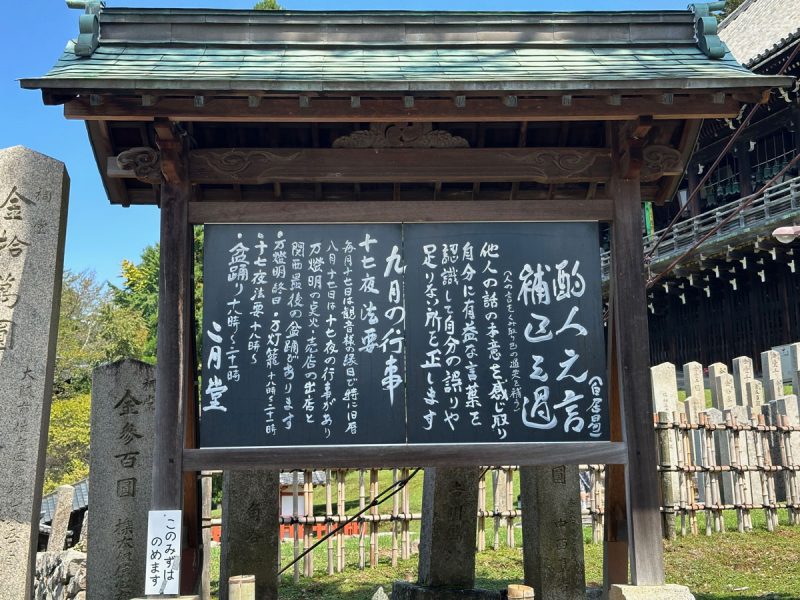 酌人之言
補己之過
(白居易)
(人の言をくみ取り己の過を補う)
他人の話の本意を感じ取り
自分に有益な言葉を
認識して自分の誤りや
足りない所を正します
九月の行事
十七夜法要
毎月十七日は観音様の縁日で特に旧暦
八月十七日は十七夜の行事があり
万燈明の点火・売店の出店と
関西最後の盆踊があります
・万燈明終日・万灯籠十八時〜二十一時
・十七夜法要十八時〜
・盆踊り十八時〜二十一時
二月堂
金拾萬円
金参百圓
このみずは
のめます